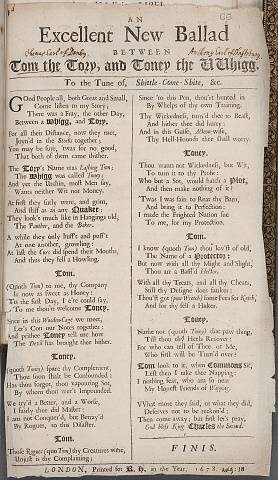 AN
Excellent New Ballad
BETWEEN
Tom the Tory, and Toney the Whigg.
To the Tune of, Shittle-Come-Shite, &c.
GOod People all, both Great and Small,
Come listen to my Story;
There was a Fray, the other Day,
Between a Whigg, and Tory,
For all their Distance, now they met,
Joyn'd in the Stocks together;
You may be sure, 'twas for no good,
That both of them came thither.
The Tory's Name was Tom;
The Whigg was called Toney;
And yet the Urchin, most Men say,
Wants neither Wit nor Money.
At first they surly were, and grim,
And stiff as as any Quaker;
They look'd much like in Hanging old,
The Panther, and the Baker.
A while they only huff't and puff't
At one another, growling;
At last the Curs did spend their Mouths,
And thus they fell a Howling.
Tom.
(Quoth Tom) to me, thy Company
Is now as sweet as Honey;
'Tis the first Day, I e're could say,
To me thou'rt welcome Toney.
Since in this Cage we meet,
Let's Con our Notes together:
And prithee Toney tell me how
The Devil has brought thee hither.
Toney.
(quoth Toney) spare thy Complement,
Thou soon shalt be Confounded:
Has thou forgot, thou vapouring Sot,
By whom thou wer't Impounded.
We try'd a Better, and a Worse,
I fairly thee did Master:
I am not Conquer'd, but Betray'd
By Rogues, to this Disaster.
Tom.
Those Rogues (quoth Tom) thy Creatures were,
Unjust is thy Complaining;
Since 'to this Pen, thou'rt hunted in
By Whelps of thy own Training.
Thy Wickedness, turn'd thee to Beast,
And hither thee did hurry;
And in this Guise,
Thy Hell-Hounds thee shall worry.
Toney.
Thou wants not Wickedness, but Wit,
To turn it to thy Profit:
Who but a Sot, would hatch a Plot,
And then make nothing of it?
'Twas I was fain to Bear thy Bant,
And bring it to Perfection:
I made the Frighted Nation sue
To me, for my Protection.
Tom.
I know (quoth Tom) thou lov'st of old,
The Name of a Protector:
But now with all thy Might and Slight,
Thou art a Baffl'd Hector.
With all thy Treats, and all thy Cheats,
Still thy Designs doe falter:
Thou'lt get (poor Wretch) some Fees for Ketch,
And for thy self a Halter.
Toney.
Name not (quoth Toney) that paw thing,
Till thou thy Heels Recover:
For who can tell of Thee or Me,
Who first will be Turn'd over?
Tom look to it, when Commons Sit,
Left they I take thee Napping;
I nothing fear, who am so near
My Majesst Friends of Wapping.
What more they said, or what they did,
Deserves not to be reckon'd;
Then come away, but first let's pray,
God bless King Charles the Second.
FINIS.
LONDON, Printed for R. H. in the Year, 1678.